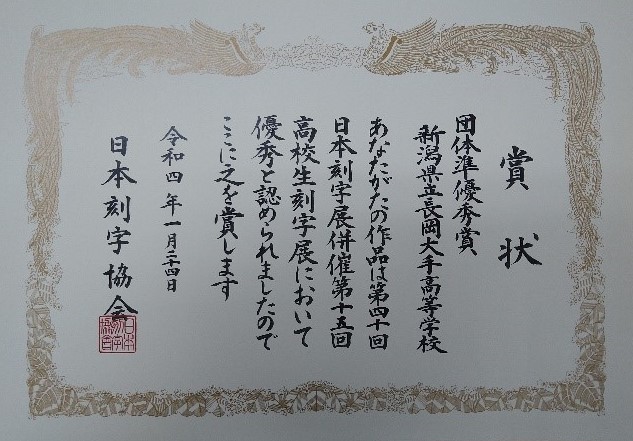 賞状
団体準優秀賞
新潟県立長岡大手高等学校
あなたがたの作品は第四十回
日本刻字展併催第十五回
高校生刻字展において
優秀と認められましたので
ここに之を賞します
令和四年一月二十四日
日本刻字協会